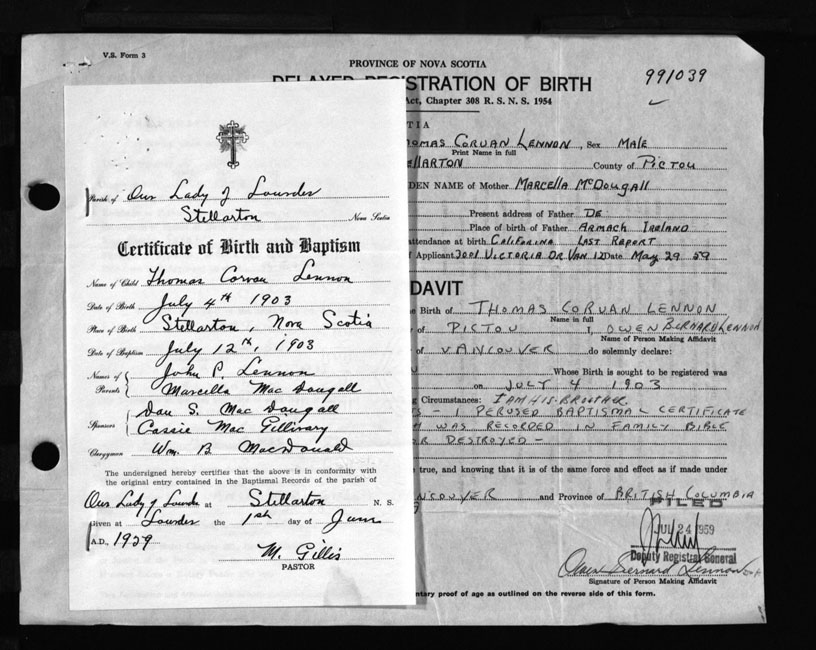 V.S. Form 3
PROVINCE OF NOVA SCOTIA
DELAYED REGISTRATION OF BIRTH
991039
Act, Chapter 308 R. S. N. S. 1954
TIA
HOMAS CORVAN LENNON, Sex MALE
Print Name in full
ELLARTON County of PICTOU
DEN NAME of Mother MARCELLA McDOUGALL
Present address of Father DE
Place of birth of Father ARMAGH IRELAND
attendance at birth CALIFORINA LAST REPORT
f Applicant 3001 VICTORIA DR. VAN 12 Date MAY 29 59
DAVIT
e Birth of THOMAS CORVAN LENNON
Name in full
of PICTOU I, OWEN BERNARD LENNON
Name of Person Making Affidavit
of VANCOUVER do solemnly declare:
Whose Birth is sought to be registered was
on JULY 4 1903
g Circumstances: I AM HIS BROTHER
TS - I PERUSED BAPTISMAL CERTIFICATE
H WAS RECORDED IN FAMILY BIBLE
OR DESTROYED -
true, and knowing that it is of the same force and effect as if made under
NCOUVER and Province of BRITISH COLUMBIA
FILED
JUL 24 1959
Deputy Registrar General
Owen Bernard Lennon
Signature of Person Making Affidavit
ntary proof of age as outlined on the reverse side of this form.
Parish of Our Lady of Lourdes
Stellarton Nova Scotia
Certificate of Birth and Baptism
Name of Child Thomas Corvan Lennon
Date of Birth July 4th 1903
Place of Birth Stellarton, Nova Scotia
Date of Baptism July 12th, 1903
Names of Parents John P. Lennon
Marcella Mac Dougall
Sponsors Dan S. Mac Dougall
Cassie Mac Gillivary
Clergyman Wm. B. MacDonald
The undersigned hereby certifies that the above is in conformity with
the original entry contained in the Baptismal Records of the parish of
Our Lady of Lourdes at Stellarton N. S.
Given at Lourdes the 1st day of June
A.D., 1959
M. Gillis
PASTOR